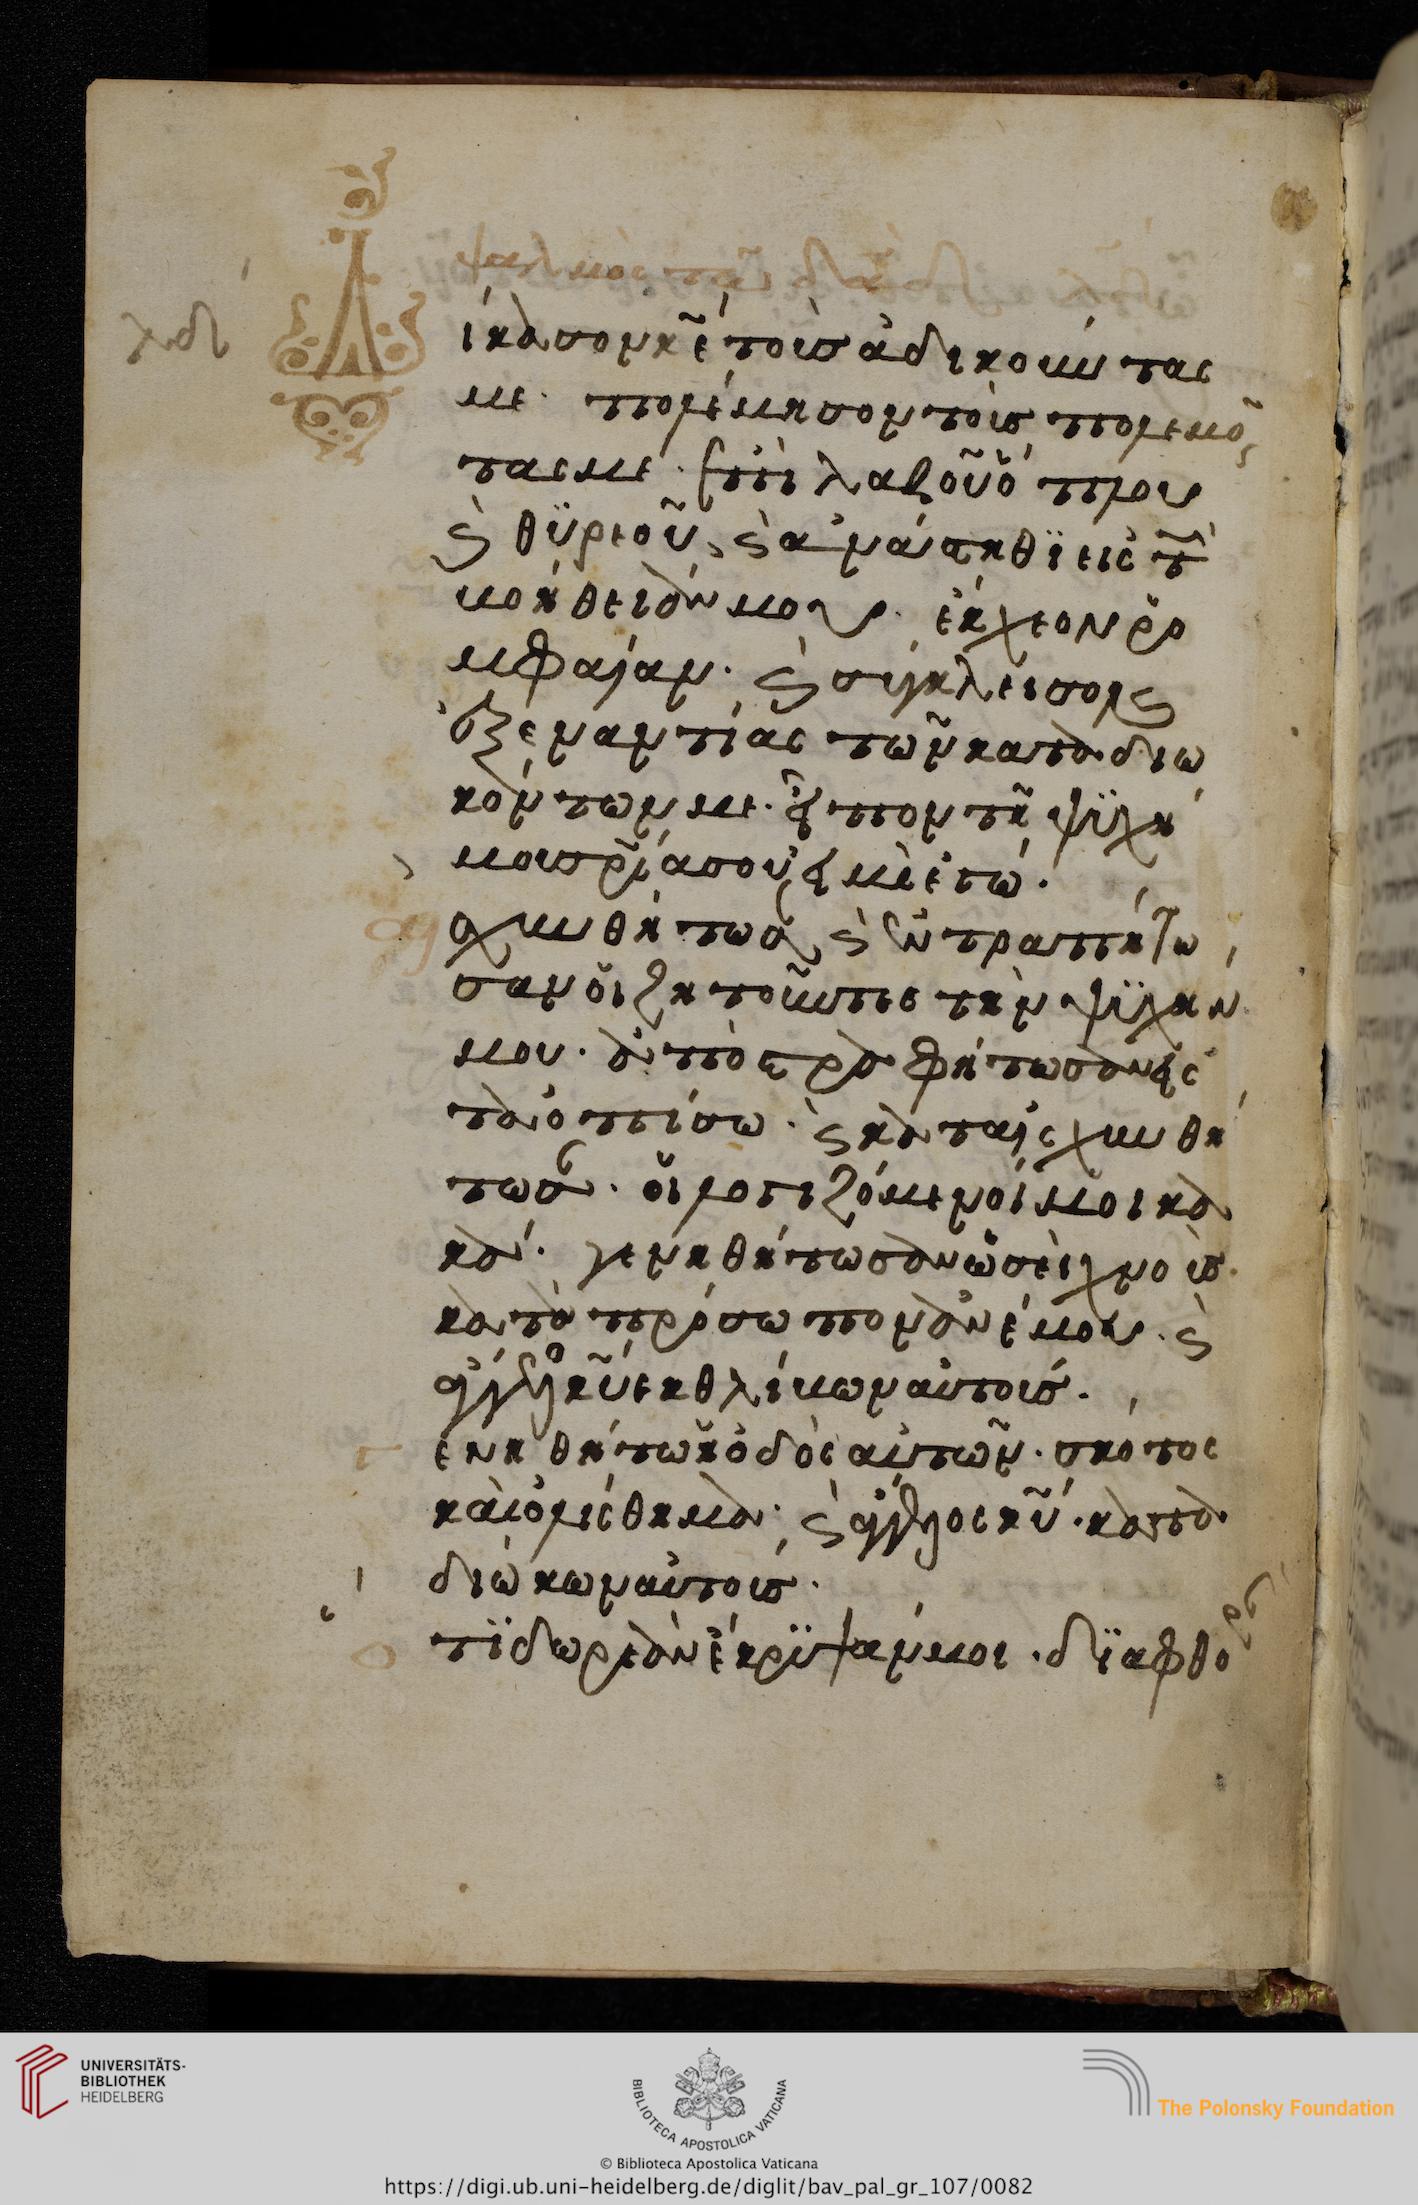 λδ
ψαλμὸς τῶ δᾱδ
Δ
ίκασον κ̄ε τοὺς ἀδικοῦντας
με. πολέμησον τοὺς πολεμοῦν
τας με. ἐπιλαβοῦ ὅπλου
ς θϋρεοῦ, ς ἀνάστηθϊ εἰς τ̄
βοήθειάν μου. ἔκχεον ρο
μφαίαν. ς σύγκλεισον ς
ἐξεναντίας τῶν καταδιω
κόντων με. εἶπον τῆ ψϋχῆ
μου σρ̄ία σου εἰμὶ ἐγώ.
αι
σχυνθήτωσαν ς ἐντραπήτω
σαν οἱ ζητοῦντες τὴν ψϋχήν
μου. ἀποστραφήτωσαν εἰς
τὰ ὀπίσω. ς καταισχυνθή
τωσαν. οἱ λογιζόμενοί μοι κα
κά. γενηθήτωσαν ὡσεὶ χνοῦς
κατὰ πρόσωπον ἀνέμου. ς
ἄγγελος κ̄υ ἐκθλίβων αὐτούς.
γ
ενηθήτω ἡ ὁδὸς αὐτῶν. σκότος
καὶ ὀλίσθημα. ς ἄγγελος κ̄υ. κατα
διώκων αὐτούς.
ο
τϊ δωρεὰν ἔκρϋψάν μοι. δϊαφθο
ρὰν
UNIVERSITÄTS-
BIBLIOTHEK
HEIDELBERG
BIBLIOTECA APOSTOLICA VATICANA
The Polonsky Foundation
© Biblioteca Apostolica Vaticana
https://digi.ub.uni-heidelberg.de/diglit/bav_pal_gr_107/0082